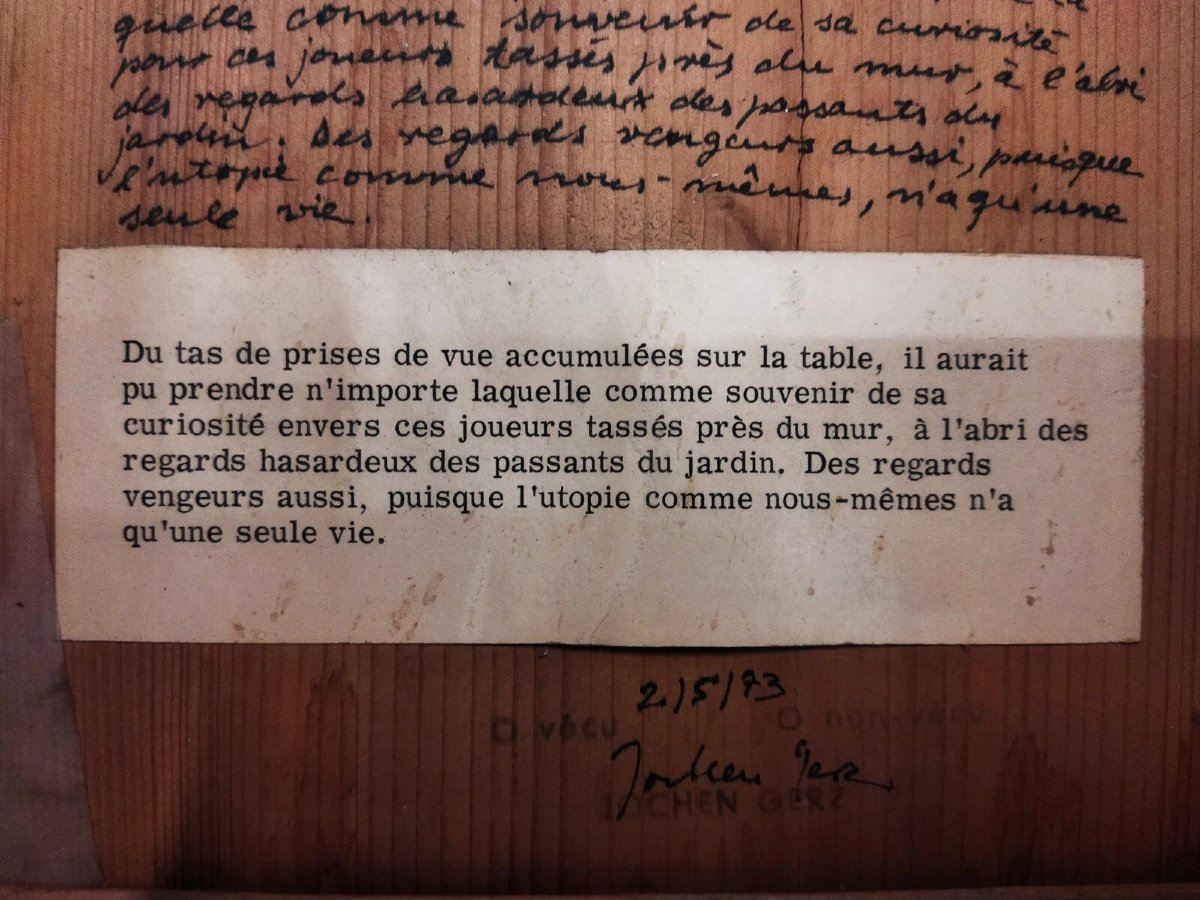 quelle comme souvenir de sa curiosité
pour ces joueurs tassés près du mur, à l'abri
des regards hasardeux des passants du
jardin. Des regards vengeurs aussi, puisque
l'utopie comme nous-mêmes, n'a qu'une
seule vie.
Du tas de prises de vue accumulées sur la table, il aurait
pu prendre n'importe laquelle comme souvenir de sa
curiosité envers ces joueurs tassés près du mur, à l'abri des
regards hasardeux des passants du jardin. Des regards
vengeurs aussi, puisque l'utopie comme nous-mêmes n'a
qu'une seule vie.
2/5/73
O vécu O non-vécu
Jochen Gerz
JOCHEN GERZ